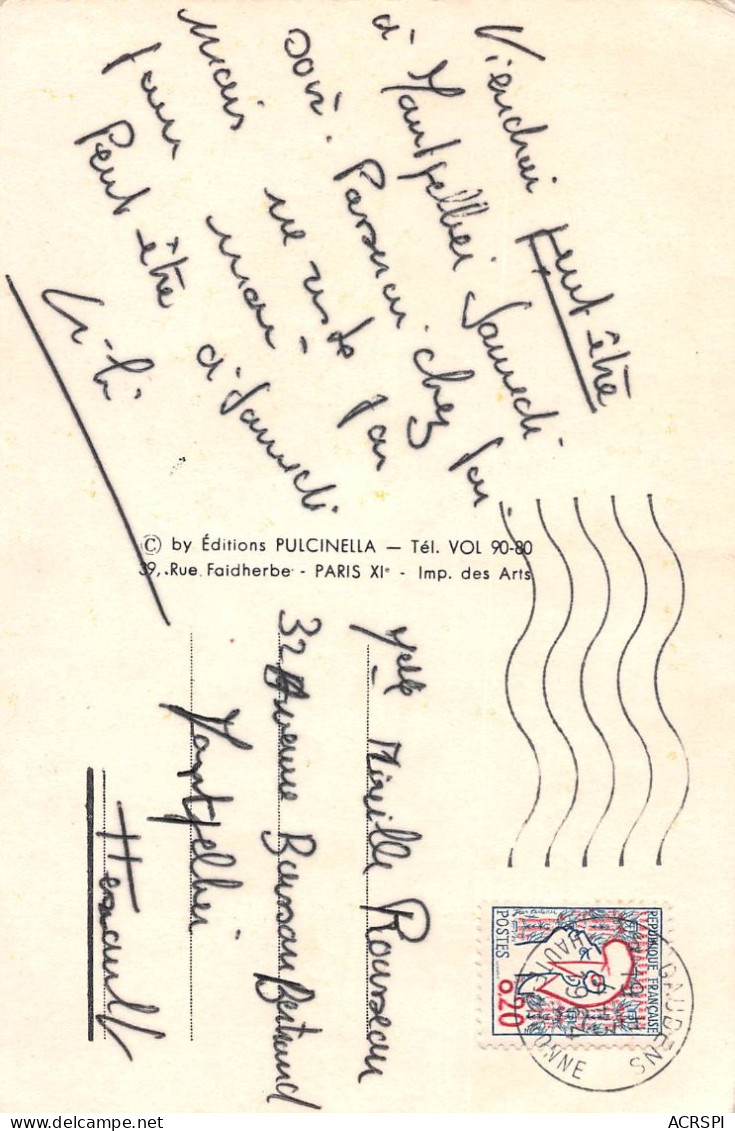 Viendrai peut être
à Montpellier Samedi
soir. Passerai chez toi
mais ne reste pas
pour moi -
Peut être à Samedi
© by Éditions PULCINELLA — Tél. VOL 90-80
39, Rue Faidherbe - PARIS XIe - Imp. des Arts
Melle Mireille Rousseau
32 Avenue Bouisson Bertrand
Montpellier
Hérault
REPUBLIQUE FRANÇAISE
0,20
POSTES
GAUDENS
HAUTE
ONNE
ACRSPI